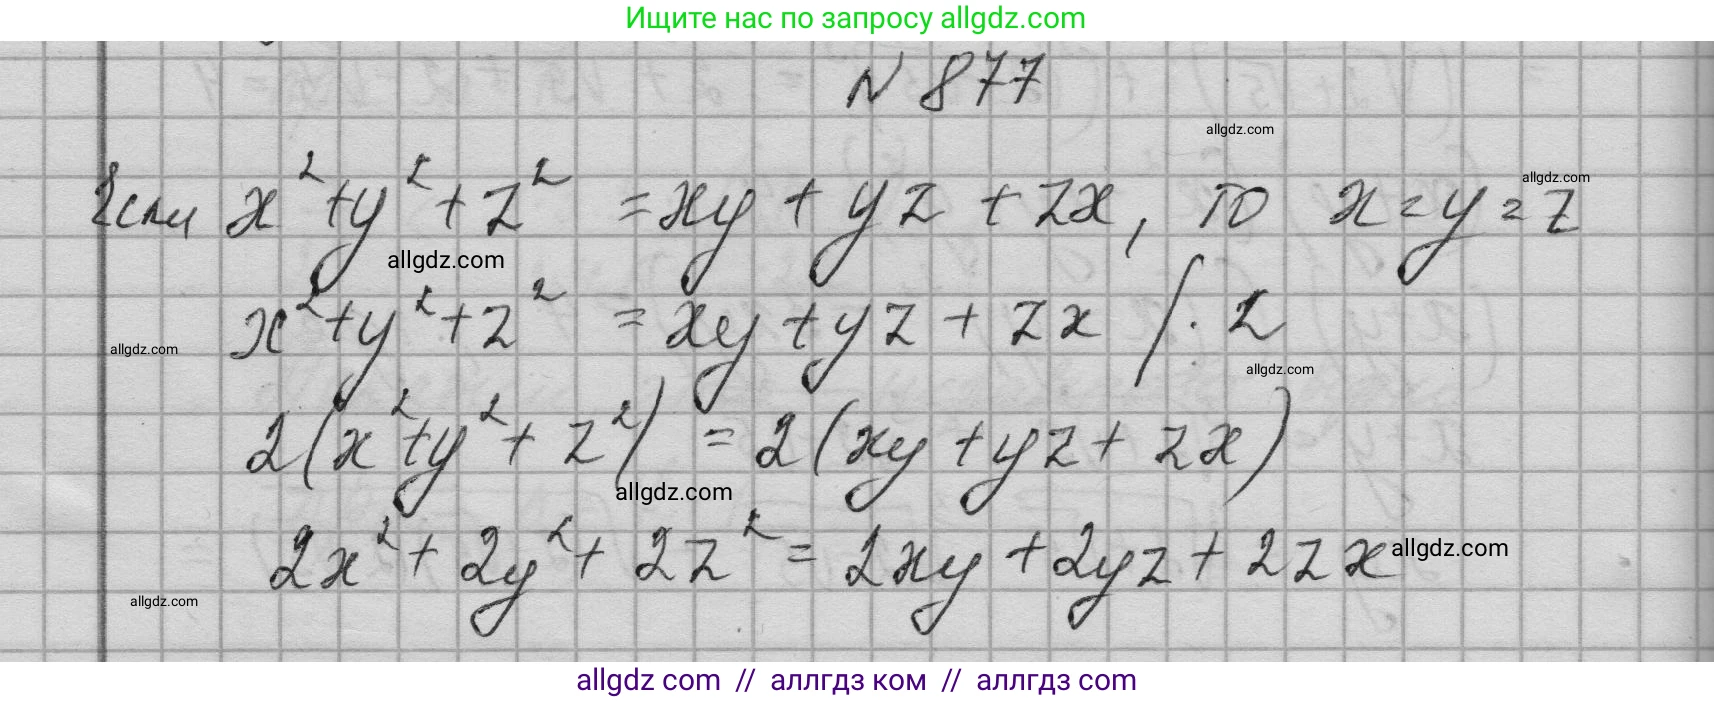 Ищите нас по запросу allgdz.com
N 877
allgdz.com
Если x²+y²+z² = xy + yz + zx, то x=y=z
allgdz.com
allgdz.com
x²+y²+z² = xy+yz+zx /·2
allgdz.com
allgdz.com
2(x²+y²+z²) = 2(xy+yz+zx)
allgdz.com
2x²+2y²+2z² = 2xy+2yz+2zx
allgdz.com
allgdz.com
allgdz com // аллгдз ком // аллгдз com